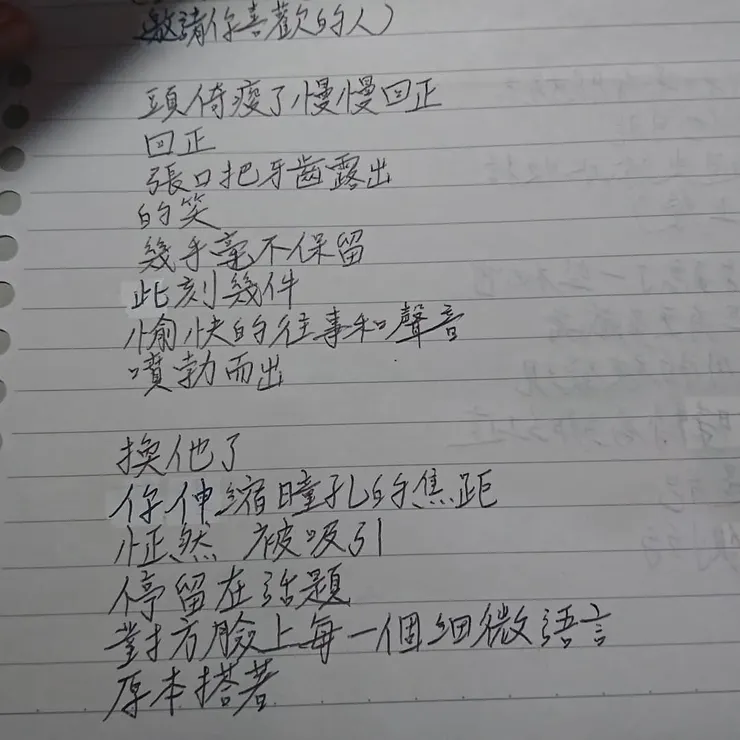 邀請你喜歡的人)
頭倚痠了慢慢回正
回正
張口把牙齒露出
的笑
幾乎毫不保留
此刻幾件
愉快的往事和聲音
噴勃而出
換他了
你伸縮瞳孔的焦距
怔然 被吸引
停留在話題
對方臉上每一個細微語言
原本搭著